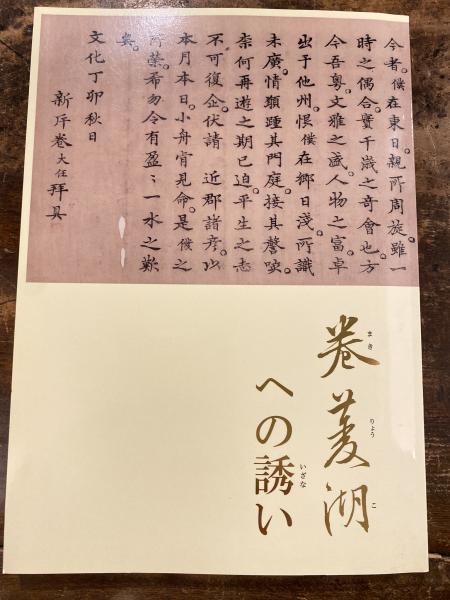 今者。僕在東日。親所周旋。雖一
時之偶合。實千歳之奇會也。方
今吾粤。文雅之盛。人物之富。卓
出于他州。恨僕在郷日淺。所識
未廣。情願踵其門庭。接其謦咳。
柰何再遊之期已迫。平生之志
不可復企。伏請 近郡諸彦。以
本月本日。小舟宵見命。是僕之
所榮希。勿令有盈盈一水之歎
矣。
文化丁卯秋日
新斥卷大任拜具
巻菱湖
まき りょう こ
への誘い
いざな